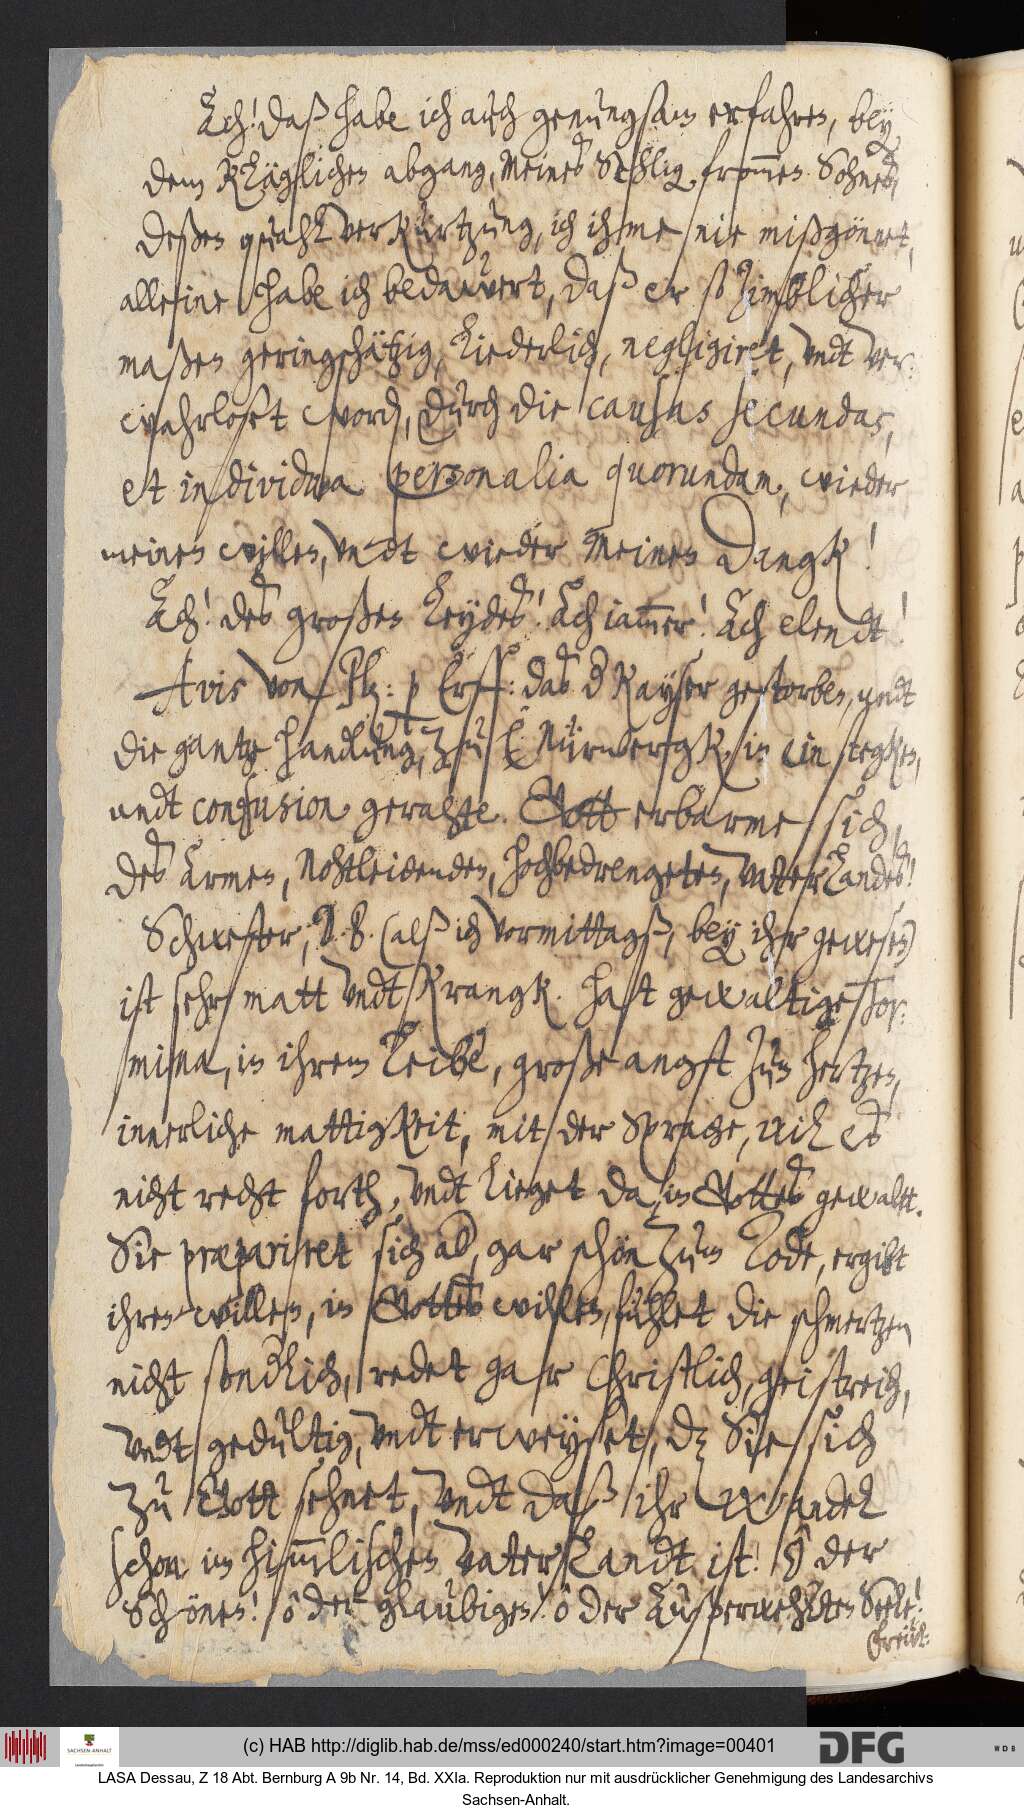 Ach! daß habe ich auch genungsam erfahren, bey
dem Kläglichen abgang, Meines Sehlig frommen Sohnes,
deßen quahl verkürtzung, ich ihme nie mißgönnet,
alleine habe ich bedauert, daß er so zimblicher
maßen geringschätzig, liederlich, negligiret, undt ver-
wahrloset word, durch die causas secundas,
et individua personalia quorundam, wieder
meinen willen, undt wieder Meinen Dangk!
Ach! des großen Leydes! Ach jammer! Ach elendt!
Avis von Plz: p Erff: das d Kayser gestorben, undt
die gantze handlung, zu Nürnbergk, in ein stegken,
undt confusion gerahte. Gott erbarme sich
des Armen, Nohtleidenden, hochbedrengeten, Vatterlandes!
Schwester, D. S. (alß ich vormittagß, bey ihr gewesen)
ist sehr matt undt krangk. hat gewaltige Tor-
mina, in ihrem Leibe, große angst zum hertzen,
innerliche mattigkeit, mit der Sprache, will es
nicht recht forth, undt lieget da, in Gottes gewaltt.
Sie præpariret sich ab, gar schön zum Tode, ergibt
ihren willen, in Gottes willen, fühlet die schmertzen
nicht sondlich, redet gar Christlich, geistreich,
undt gedultig, undt erweyset, dz Sie sich
zu Gott sehnet, undt daß ihr Wandel
schon im himmlischen Vaterlandt ist! ô der
Schönen! ô der glaubigen! ô der Außerwehlten Seele!
(c) HAB http://diglib.hab.de/mss/ed000240/start.htm?image=00401
SACHSEN-ANHALT
DFG
WDB
LASA Dessau, Z 18 Abt. Bernburg A 9b Nr. 14, Bd. XXIa. Reproduktion nur mit ausdrücklicher Genehmigung des Landesarchivs
Sachsen-Anhalt.